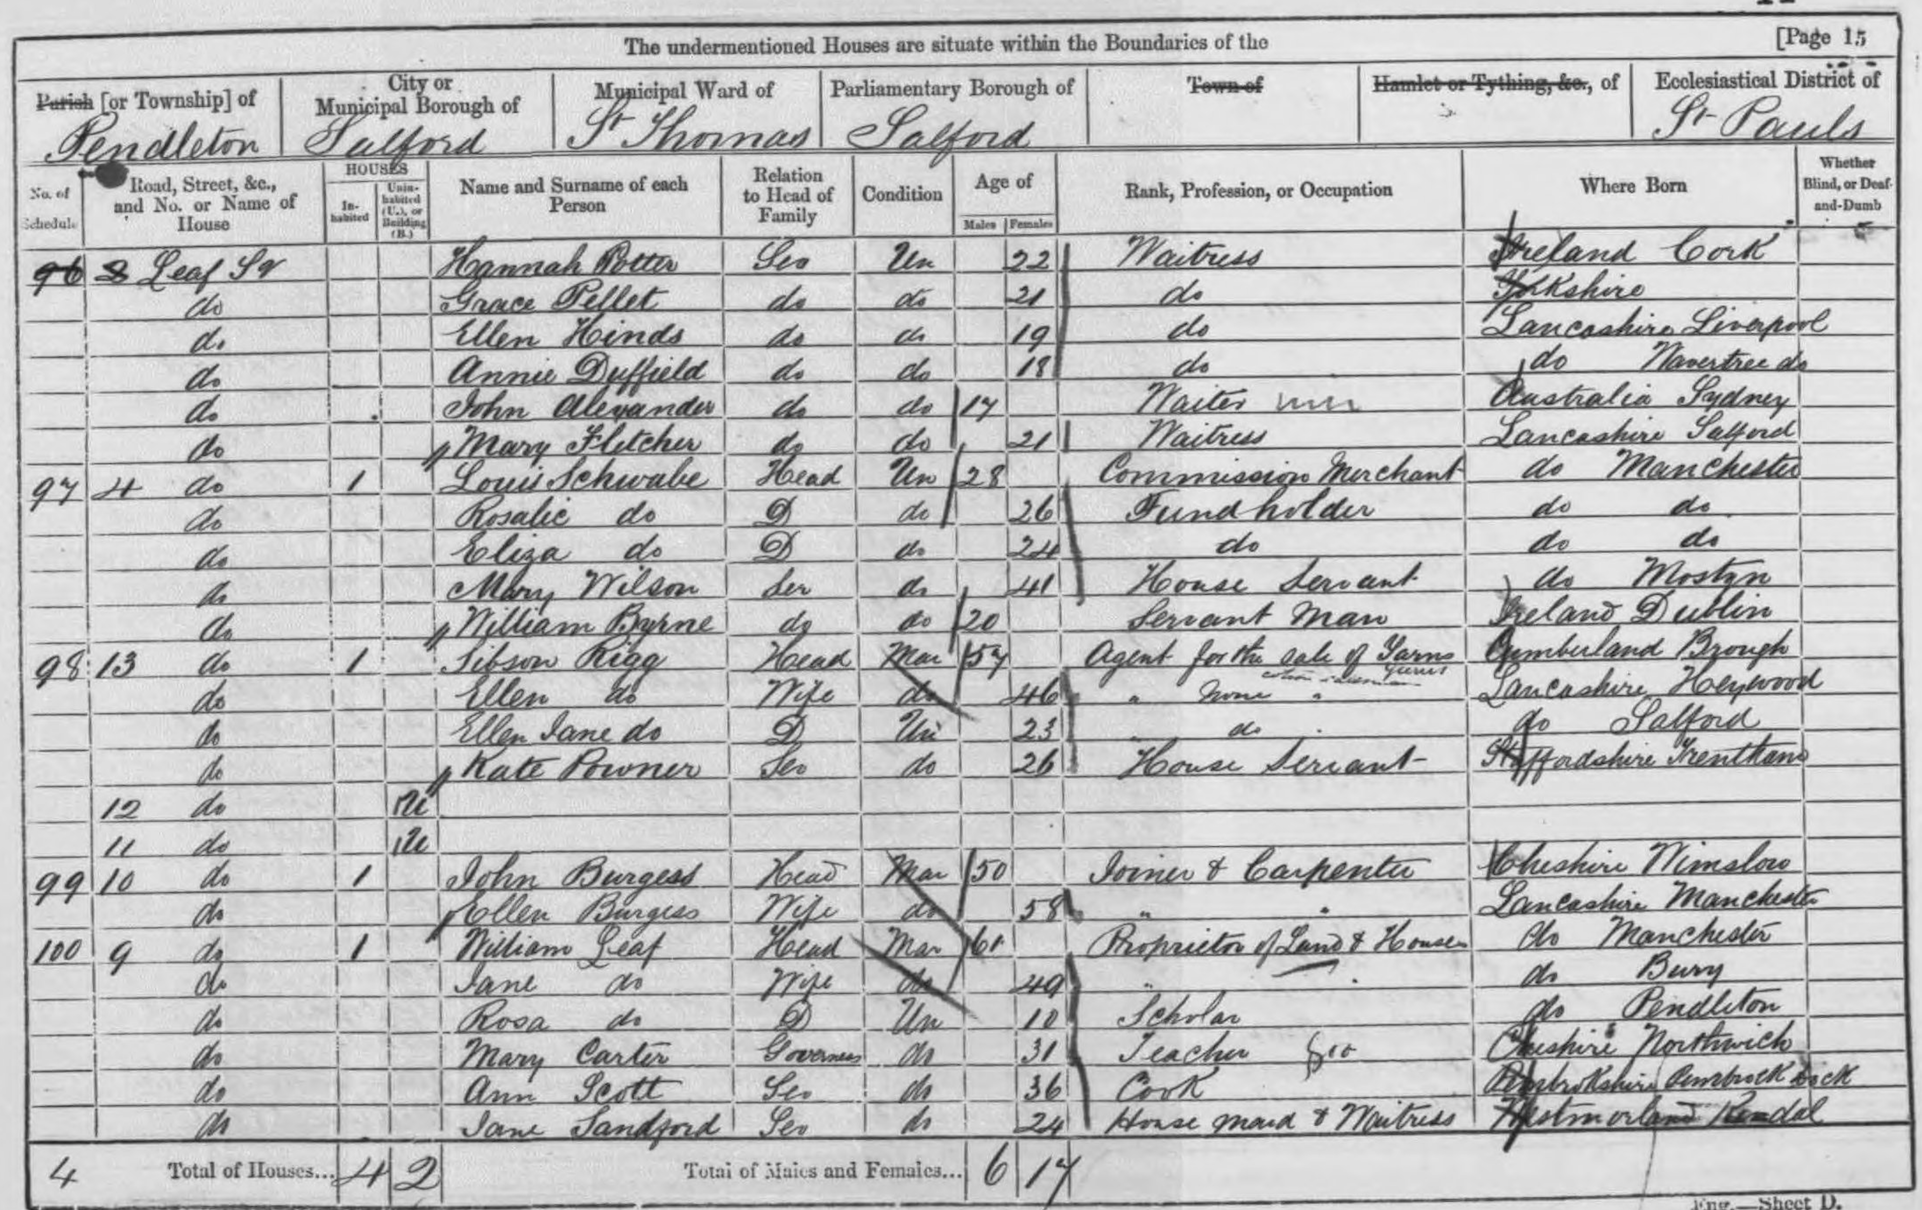 The undermentioned Houses are situate within the Boundaries of the [Page 15
Parish [or Township] of City or Municipal Borough of Municipal Ward of Parliamentary Borough of Town of Hamlet or Tything, &c., of Ecclesiastical District of
Pendleton Salford St Thomas Salford St Pauls
No. of Schedule Road, Street, &c., and No. or Name of House HOUSES Inhabited Uninhabited (U.), or Building (B.) Name and Surname of each Person Relation to Head of Family Condition Age of Males Females Rank, Profession, or Occupation Where Born Whether Blind, or Deaf-and-Dumb
96 8 Leaf Sq Hannah Potter Ser Un 22 Waitress Ireland Cork
do Grace Pellet do do 21 do Yorkshire
do Ellen Hinds do do 19 do Lancashire Liverpool
do Annie Duffield do do 18 do do Wavertree do
do John Alexander do do 17 Waiter Australia Sydney
do Mary Fletcher do do 21 Waitress Lancashire Salford
97 4 do 1 Louis Schwabe Head Un 28 Commission Merchant do Manchester
do Rosalie do D do 26 Fundholder do do
do Eliza do D do 24 do do do
do Mary Wilson Ser do 41 House Servant do Mostyn
do William Byrne do do 20 Servant Man Ireland Dublin
98 13 do 1 Sibson Rigg Head Mar 57 Agent for the sale of Yarns Cumberland Brough
do Ellen do Wife do 46 " None " Lancashire Heywood
do Ellen Jane do D Un 23 do do Salford
do Kate Powner Ser do 26 House Servant Staffordshire Trentham
12 do U
11 do U
99 10 do 1 John Burgess Head Mar 50 Joiner & Carpenter Cheshire Wimslow
do Ellen Burgess Wife do 58 " " Lancashire Manchester
100 9 do 1 William Leaf Head Mar 61 Proprietor of Land & Houses do Manchester
do Jane do Wife do 49 " do Bury
do Rosa do D Un 10 Scholar do Pendleton
do Mary Carter Governess do 31 Teacher Cheshire Northwich
do Ann Scott Ser do 36 Cook Pembrokshire Pembrock Dock
do Jane Sandford Ser do 24 House maid & Waitress Westmorland Kendal
4 Total of Houses... 4 2 Total of Males and Females... 6 17
Eng.—Sheet D.